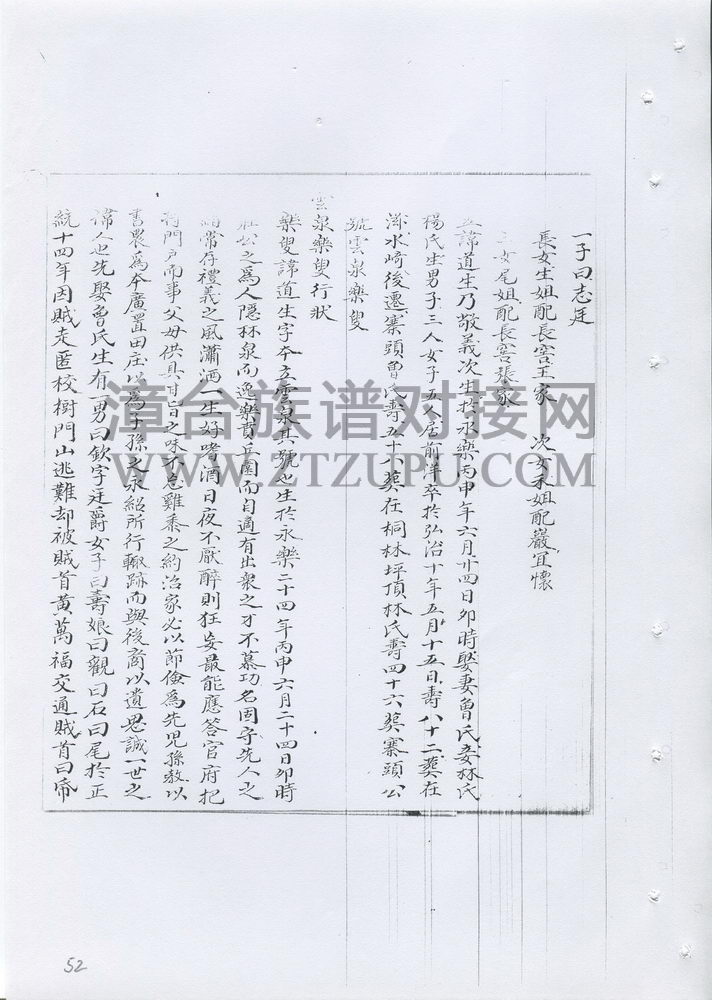 一子曰志廷
長女生姐配長窖王家 次女禾姐配巖宜懷
女尾姐配長窖張家
諱道生乃敬義次生於永樂丙申年六月廿四日卯時娶妻魯氏妾林氏
楊氏生男子三人女子五人居前洋卒於弘治十年五月十五日壽八十二葬在
水崎後遷寨頭魯氏壽五十八葬在桐林坪頂林氏壽四十六葬寨頭公
號雲泉樂叟
雲泉樂叟行狀
樂叟諱道生字本立雲泉其號也生於永樂二十四年丙申六月二十四日卯時
公之爲人隱林泉而逸樂賁丘園而自適有出衆之才不慕功名固守先人之
常存禮義之風瀟洒一生好嗜酒日夜不厭醉則狂妄最能應答官府把
門戶而事父母供具甘旨之味不怠雞黍之約治家必以節儉爲先兒孫教以
書農爲本廣置田庄以爲子孫之永紹所行轍跡而與後裔以遺思誠一世之
偉人也先娶魯氏生有一男曰欽字廷爵女子曰壽娘曰觀曰石曰尾於正
統十四年因賊走匿校樹門山逃難却被賊首黃萬福交通賊首曰帝
漳台族谱对接网
WWW.ZTZUPU.COM
52